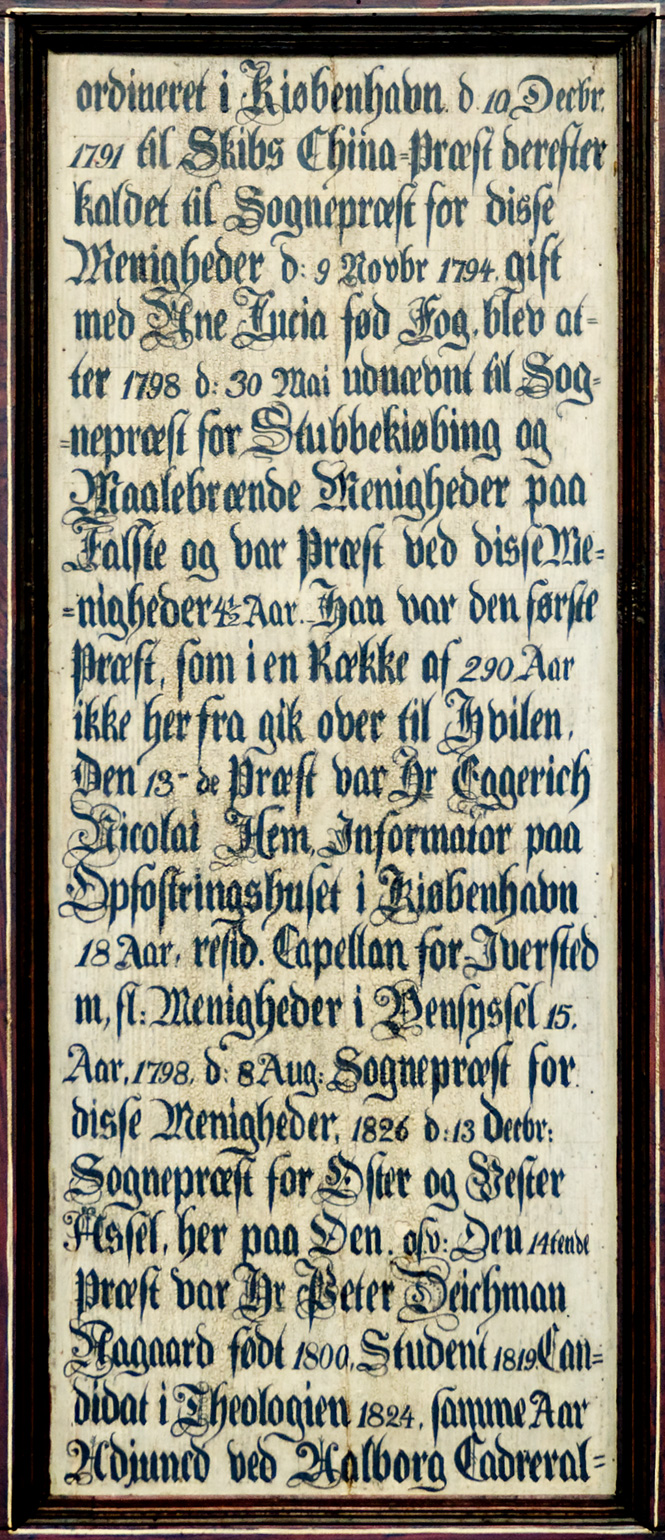 ordineret i Kiøbenhavn d. 10 Decbr.
1791 til Skibs China=Præst derefter
kaldet til Sognepræst for disse
Menigheder d: 9 Novbr 1794. gift
med Ane Lucia fød Fog, blev at=
ter 1798 d: 30 Mai udnævnt til Sog=
=nepræst for Stubbekiøbing og
Maalebrænde Menigheder paa
Falste og var Præst ved disse Me=
=nigheder 4½ Aar. Han var den første
Præst, som i en Række af 290 Aar
ikke herfra gik over til Hvilen.
Den 13-de Præst var Hr Eggerich
Nicolai Hem, Informator paa
Opfostringshuset i Kiøbenhavn
18 Aar, resid. Capellan for Iversted
m, fl: Menigheder i Vensyssel 15.
Aar, 1798, d: 8 Aug: Sognepræst for
disse Menigheder, 1826 d: 13 Decbr:
Sognepræst for Øster og Vester
Assel, her paa Øen. osv: Den 14tende
Præst var Hr Peter Deichman
Aagaard født 1800, Student 1819 Can=
didat i Theologien 1824, samme Aar
Adjunct ved Aalborg Cadreral=